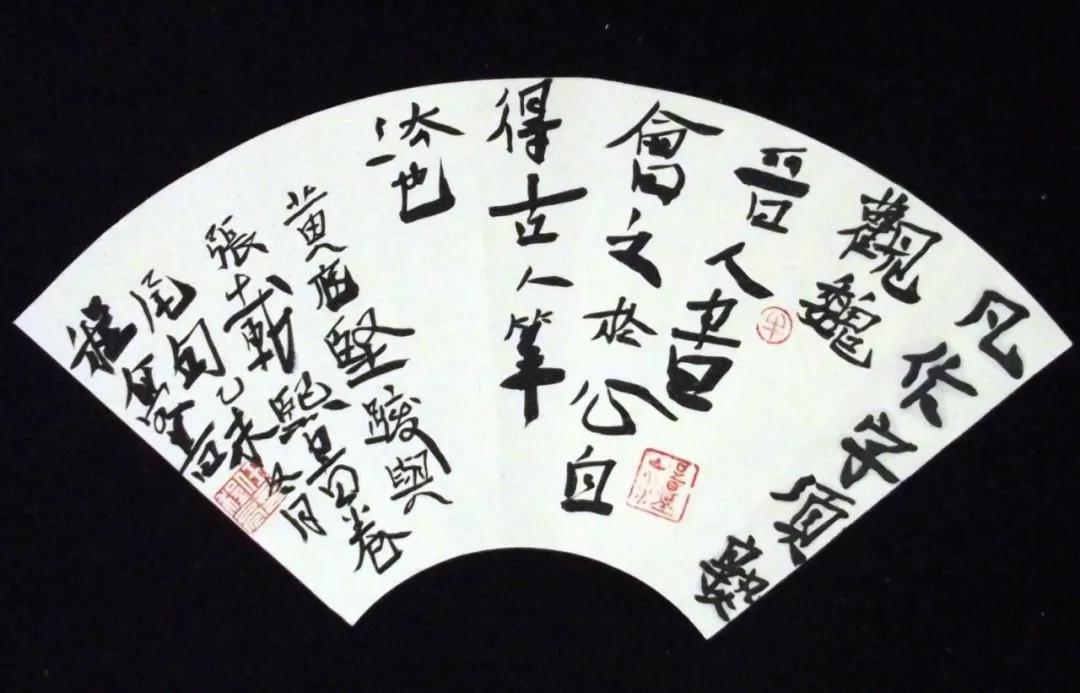 凡作字須熟
觀魏
晉人書
會之於心自
得古人筆
法也
黃庭堅跋與
張載熙書卷
尾句乙未冬月
程書